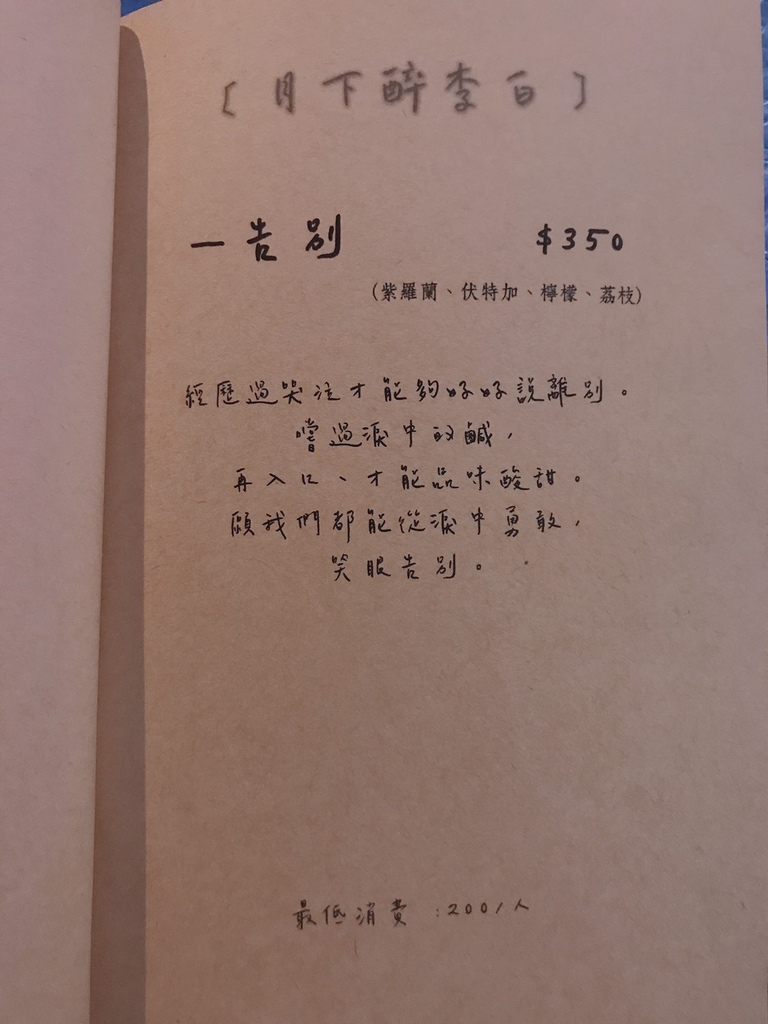 [月下醉李白]
一告別 $350
(紫羅蘭、伏特加、檸檬、荔枝)
經歷過哭泣才能夠好好說離別。
嚐過淚中的鹹,
再入口、才能品味酸甜。
願我們都能從淚中勇敢,
笑眼告別。
最低消費:200/人